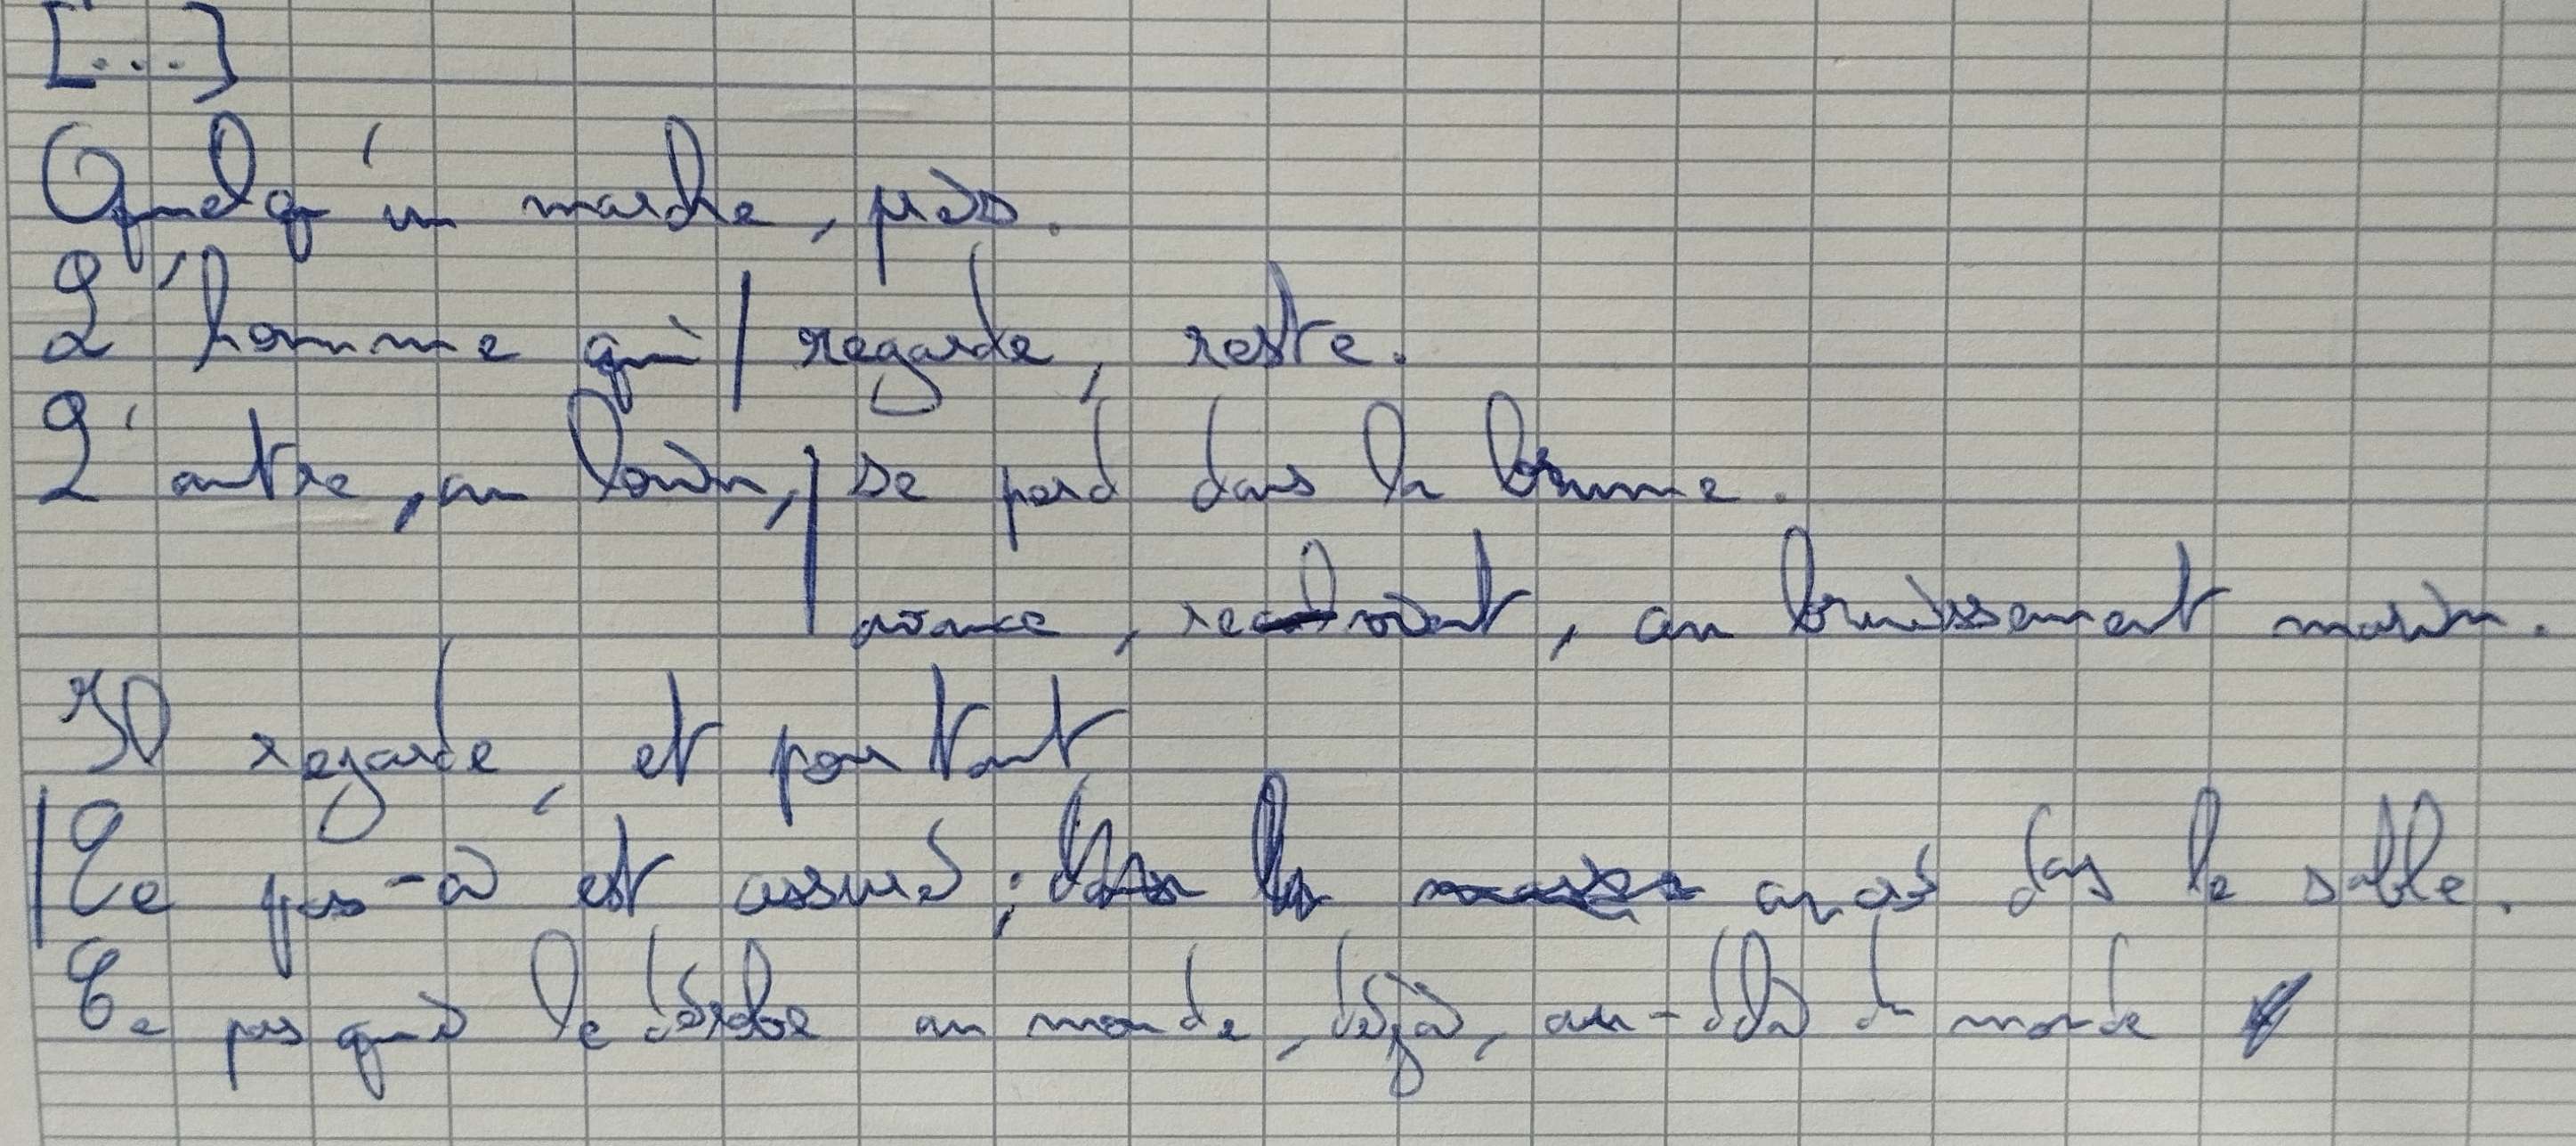 [...]
Quelqu'un marche, près.
L'homme qui | regarde, reste.
L'autre, au loin, | se perd dans la brume.
| avance, revient, au bruissement marin.
Il regarde, et pourtant
| Ce pas-là est assuré ; dans le sable.
Ce pas qui le dérobe au monde, déjà, au-delà du monde